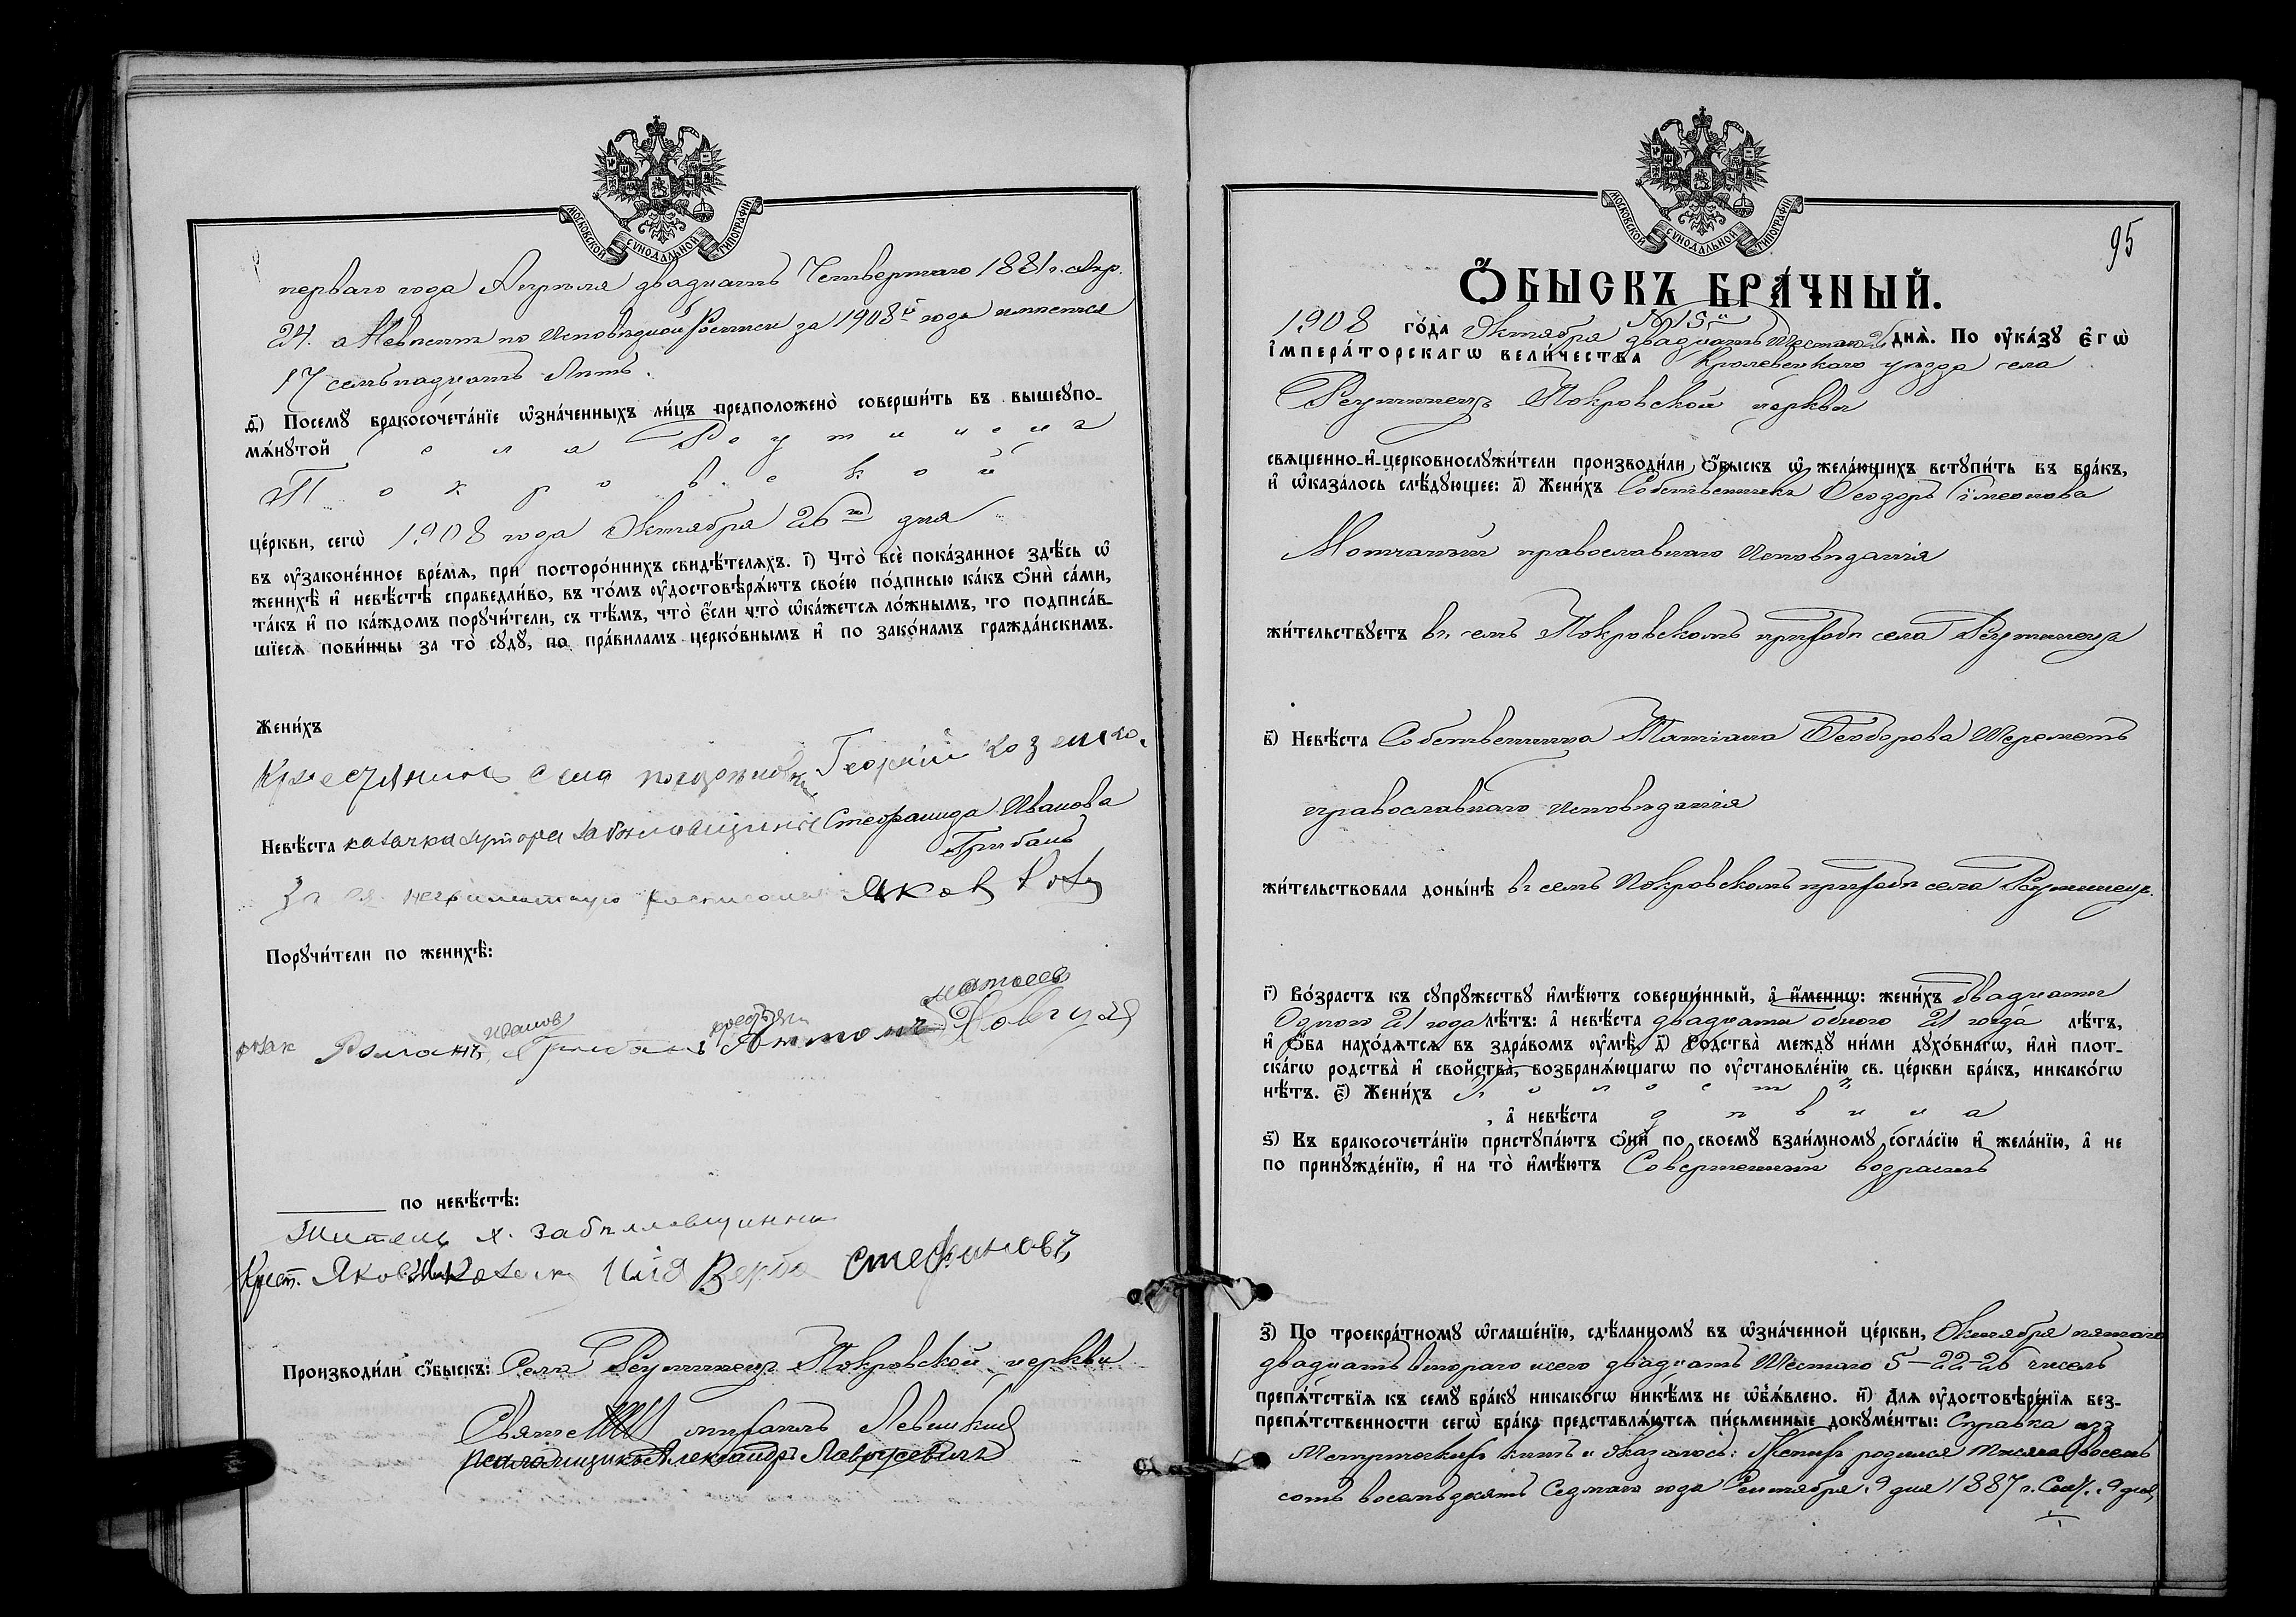 МОСКОВСКОЙ СУНОДАЛЬНОЙ ТИПОГРАФІИ
перваго года Апрѣля двадцать Четвертаго 1881 г. Апр.
24. а Невѣста по Исповѣдной Росписи за 1908й годъ имѣется
17 семьнадцать Лѣтъ.
д҃і) Посемꙋ̀ бракосочета́нїе ѡ҆зна́ченныхъ ли́цъ предположено̀ соверши́ть въ вышеꙋпо-
мѧ́нꙋтой села Реутинецъ
Покровской
це́ркви, сегѡ̀ 1908 года Октября 26го дня
въ ᲂу҆законе́нное вре́мѧ, при посторо́ннихъ свидѣ́телѧхъ. і҃) Что̀ всѐ пока́занное здѣ́сь ѡ҆
женихѣ̀ и҆ невѣ́стѣ справедли́во, въ то́мъ ᲂу҆достовѣрѧ́ютъ свое́ю по́дписью ка́къ ѻ҆нѝ са́ми,
та́къ и҆ по ка́ждомъ порꙋчи́тели, съ тѣ́мъ, что̀ є҆́сли что̀ ѡ҆ка́жетсѧ ло́жнымъ, то подписа́в-
шїесѧ пови́нны за то̀ сꙋдꙋ̀, по пра́виламъ церко́внымъ и҆ по зако́намъ гражда́нскимъ.
Жени́хъ
Крестянинъ села Георгій Козенко.
Невѣ́ста казачка хутора Забѣловщины Стефанида Иванова
Грибанъ
За ея неграмотную росписался Яковъ
Порꙋчи́тели по женихѣ̀:
Матвеев
Иванов
козак Романъ Грибанъ Антонъ Довгуля
по невѣ́стѣ:
Житель х. Забѣлловщинни
Крест. Яковъ Илія Верба Стефановъ
Производи́ли ѻ҆́быскъ: Села Реутинецъ Покровской церкви
Священ Михаилъ Левицкій
Псаломщикъ Александръ
95
Ѻ҆БЫСКЪ БРА́ЧНЫЙ.
№ 15й
1908 го́да Октября двадцать Шестаго 26 днѧ̀. По ᲂу҆ка́зꙋ Є҆гѡ̀
І҆мпера́торскагѡ вели́чества Кролевецкаго уѣзда села
Реутинецъ Покровской церкви
свѧще́нно-и҆-церковнослꙋжи́тели производи́ли ѻ҆́быскъ ѡ҆ жела́ющихъ встꙋпи́ть въ бра́къ,
и҆ ѡ҆каза́лось слѣ́дꙋющее: а҃) Жени́хъ Собственникъ Ѳеодоръ Сімеоновъ
Мотчаный православнаго Исповѣданія
жи́тельствꙋетъ въ семъ Покровскомъ приходѣ села Реутинецъ
в҃) Невѣ́ста Собственница Татіана Ѳеодорова Шереметъ
православнаго исповѣданія
жи́тельствовала доны́нѣ въ семъ Покровскомъ приходѣ села Реутинецъ.
г҃) Во́зрастъ къ сꙋпрꙋ́жествꙋ и҆мѣ́ютъ соверше́нный, а҆ и҆́меннѡ: жени́хъ двадцати
Одного 21 года лѣ́тъ: а҆ невѣ́ста двадцати одного 21 года лѣ́тъ,
и҆ ѻ҆́ба нахо́дѧтсѧ въ здра́вомъ ᲂу҆мѣ̀. д҃) Родства̀ междꙋ ни́ми дꙋхо́внагѡ, и҆лѝ плот-
ска́гѡ родства̀ и҆ свойства̀, возбранѧ́ющагѡ по ᲂу҆становле́нїю св. це́ркви бра́къ, никако́гѡ
нѣ́тъ. є҃) Жени́хъ холостъ
, а҆ невѣ́ста дѣвица
ѕ҃) Въ бракосочета́нїю пристꙋпа́ютъ ѻ҆нѝ по своемꙋ̀ взаи́мномꙋ согла́сїю и҆ жела́нїю, а҆ не
по принꙋжде́нїю, и҆ на то̀ и҆мѣ́ютъ Совершенный возрастъ
з҃) По троекра́тномꙋ ѡ҆глаше́нїю, сдѣ́ланномꙋ въ ѡ҆зна́ченной це́ркви, Октября пятаго
двадцать втораго и сего двадцать Шестаго 5-22-26 чиселъ
препѧ́тствїѧ къ семꙋ̀ бра́кꙋ никако́гѡ никѣ́мъ не ѡ҆б̾ѧ́влено. и҃) Длѧ ᲂу҆достовѣре́нїѧ без-
препѧ́тственности сегѡ̀ бра́ка представлѧ́ютсѧ пи́сьменные докꙋме́нты: Справка изъ
Метрическихъ книгъ и оказалось: Женихъ родился тысяча восемь
сотъ восемьдесятъ Седмаго года Сентября 9 дня 1887 г. Сент. 9 дня,